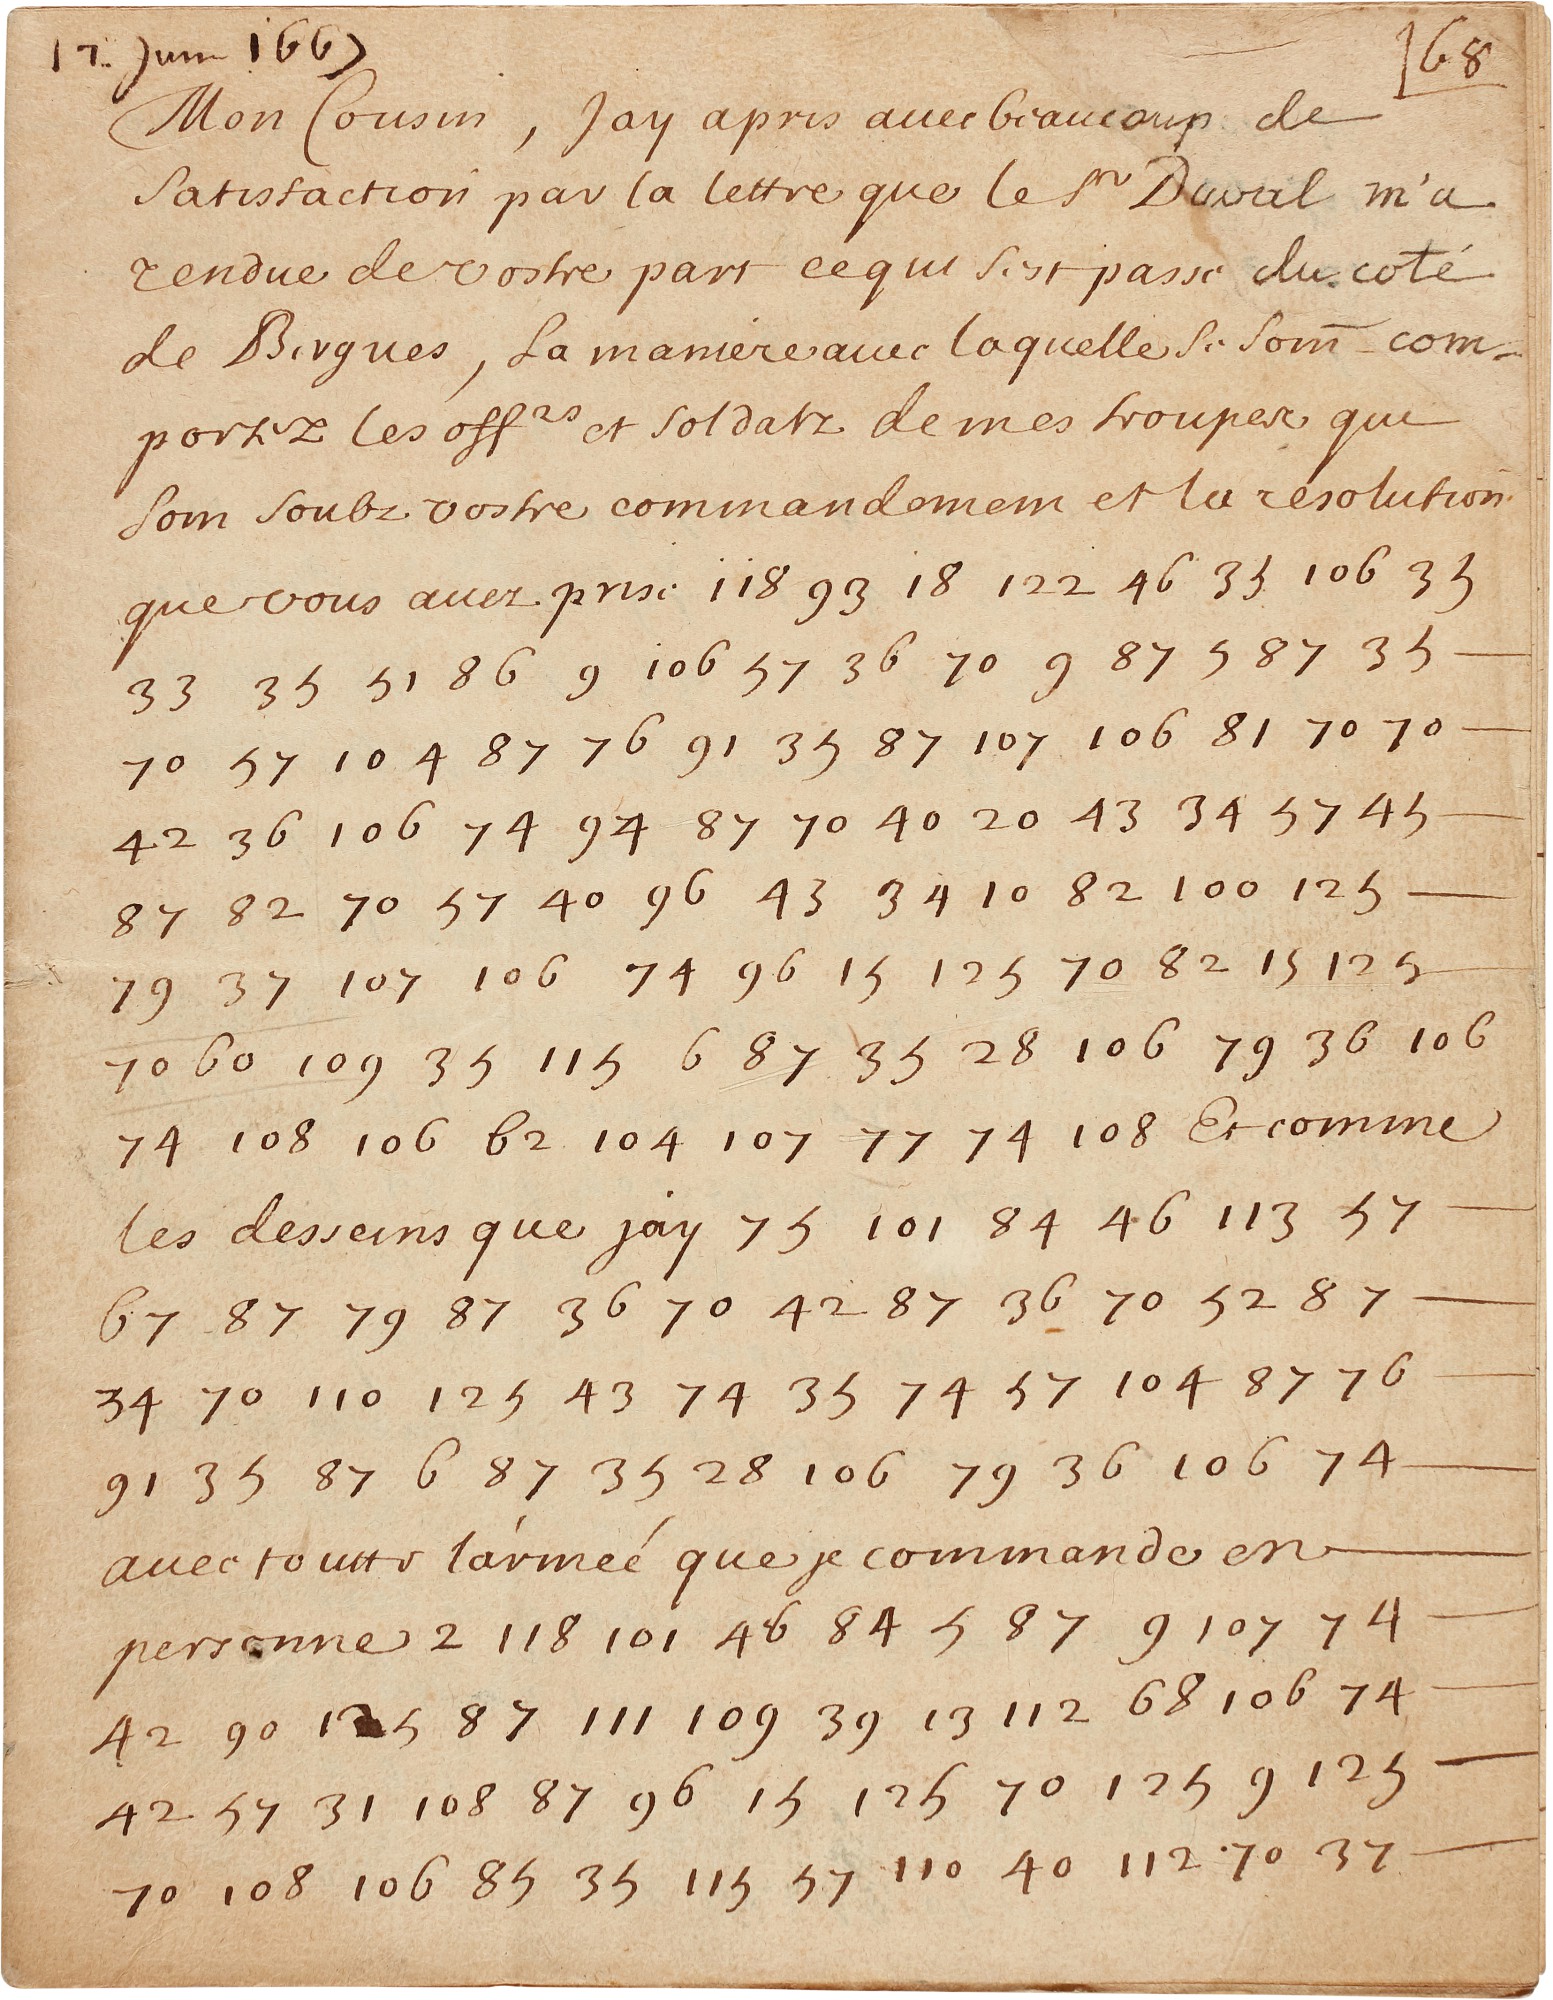 17. Juin 1667
168
Mon Cousin, Jay apris avec beaucoup de
satisfaction par la lettre que le Sr Duval m'a
rendue de vostre part ce qui s'est passé du coté
de Bergues, La maniere avec laquelle se sont com-
portez les offrs et soldatz de mes troupes qui
sont soubz vostre commandement et la resolution
que vous avez prise 118 93 18 122 46 35 106 35
33 35 51 86 9 106 57 36 70 9 87 5 87 35
70 57 10 4 87 76 91 35 87 107 106 81 70 70
42 36 106 74 94 87 70 40 20 43 34 57 45
87 82 70 57 40 96 43 34 10 82 100 125
79 37 107 106 74 96 15 125 70 82 15 125
70 60 109 35 115 6 87 35 28 106 79 36 106
74 108 106 62 104 107 77 74 108 Et comme
les desseins que jay 75 101 84 46 113 57
67 87 79 87 36 70 42 87 36 70 52 87
34 70 110 125 43 74 35 74 57 104 87 76
91 35 87 6 87 35 28 106 79 36 106 74
avec toutte l'armeé que je commande en
personne 2 118 101 46 84 5 87 9 107 74
42 90 125 87 111 109 39 13 112 68 106 74
42 57 31 108 87 96 15 125 70 125 9 125
70 108 106 85 35 115 57 110 40 112 70 37